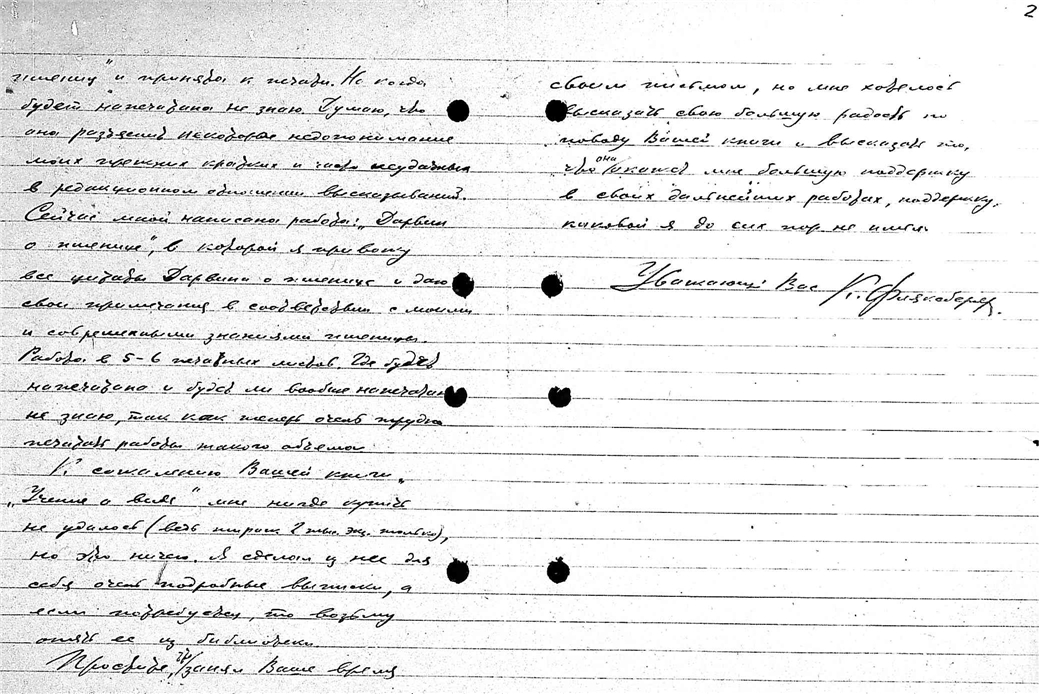 2
пшениц" и принята к печати. Но когда
будет напечатана не знаю. Думаю, что
она разъяснит некоторые недопонимание
моих прежних кратких и часто неудачных
в редакционном отношении высказываний.
Сейчас мной написана работа: „Дарвин
о пшенице", в которой я привожу
все цитаты Дарвина о пшенице и даю
свои примечания в соответствии с моими
и современными знаниями пшениц.
Работа в 5-6 печатных листов. Где будет
напечатана и будет ли вообще напечатана
не знаю, так как теперь очень трудно
печатать работы такого объема.
К сожалению Вашей книги
„Учение о виде" мне нигде купить
не удалось (ведь тираж 2 тыс. экз. только),
но это ничего. Я сделал из нее для
себя очень подробные выписки, а
если потребуется, то возьму
опять ее из библиотеки
Простите, что занял Ваше время
своим письмом, но мне хотелось
высказать свою большую радость по
поводу Вашей книги и высказать то,
что она окажет мне большую поддержку
в своих дальнейших работах, поддержку,
каковой я до сих пор не имел.
Уважающий Вас К. Фляксбергер.